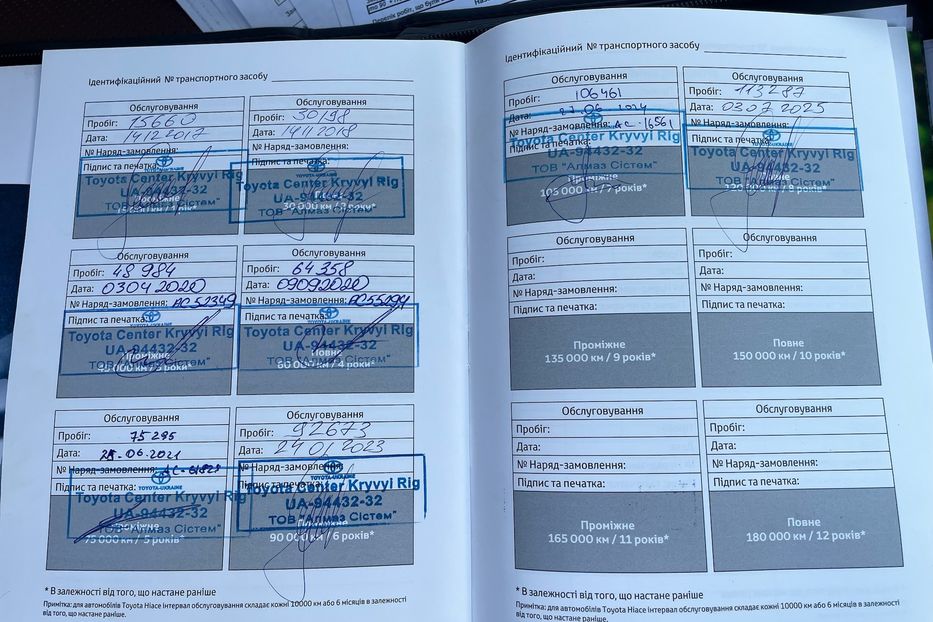 Перелік робіт, що були
Ідентифікаційний № транспортного засобу
Обслуговування
Пробіг: 15660
Дата: 14122017
№ Наряд-замовлення:
Підпис та печатка:
Toyota Center Kryvyi Rig
UA-94432-32
ТОВ "Алмаз Сістем"
15 000 км / 1 рік*
Обслуговування
Пробіг: 30198
Дата: 14112018
№ Наряд-замовлення:
Підпис та печатка:
Toyota Center Kryvyi Rig
UA-94432-32
ТОВ "Алмаз Сістем"
30 000 км / 2 роки*
Обслуговування
Пробіг: 48 984
Дата: 03042020
№ Наряд-замовлення: АС52349
Підпис та печатка:
TOYOTA-UKRAINE
Toyota Center Kryvyi Rig
UA-94432-32
Проміжне
ТОВ "Алмаз Сістем"
45 000 км / 3 роки*
Обслуговування
Пробіг: 64 358
Дата: 09092020
№ Наряд-замовлення: АС55294
Підпис та печатка:
TOYOTA-UKRAINE
Toyota Center Kryvyi Rig
UA-94432-32
Повне
ТОВ "Алмаз Сістем"
60 000 км / 4 роки*
Обслуговування
Пробіг: 75 295
Дата: .06.2021
№ Наряд-замовлення:
Підпис та печатка:
TOYOTA-UKRAINE
Toyota Center Kryvyi Rig
UA-94432-32
Проміжне
ТОВ "Алмаз Сістем"
75 000 км / 5 років*
Обслуговування
Пробіг: 92673
Дата: 24 01 2023
№ Наряд-замовлення:
Підпис та печатка:
TOYOTA-UKRAINE
Toyota Center Kryvyi Rig
UA-94432-32
ТОВ "Алмаз Сістем"
90 000 км / 6 років*
* В залежності від того, що настане раніше
Примітка: для автомобілів Toyota Hiace інтервал обслуговування складає кожні 10000 км або 6 місяців в залежності
від того, що настане раніше.
Ідентифікаційний № транспортного засобу
Обслуговування
Пробіг: 106461
Дата: 27 06 2024
№ Наряд-замовлення: АС-16561
Підпис та печатка:
Toyota Center Kryvyi Rig
UA-94432-32
ТОВ "Алмаз Сістем"
Проміжне
105 000 км / 7 років*
Обслуговування
Пробіг: 113287
Дата: 03.07 2025
№ Наряд-замовлення:
Підпис та печатка:
Toyota Center Kryvyi Rig
UA-94432-32
ТОВ "Алмаз Сістем"
120 000 км / 8 років*
Обслуговування
Пробіг:
Дата:
№ Наряд-замовлення:
Підпис та печатка:
Проміжне
135 000 км / 9 років*
Обслуговування
Пробіг:
Дата:
№ Наряд-замовлення:
Підпис та печатка:
Повне
150 000 км / 10 років*
Обслуговування
Пробіг:
Дата:
№ Наряд-замовлення:
Підпис та печатка:
Проміжне
165 000 км / 11 років*
Обслуговування
Пробіг:
Дата:
№ Наряд-замовлення:
Підпис та печатка:
Повне
180 000 км / 12 років*
* В залежності від того, що настане раніше
Примітка: для автомобілів Toyota Hiace інтервал обслуговування складає кожні 10000 км або 6 місяців в залежності
від того, що настане раніше.